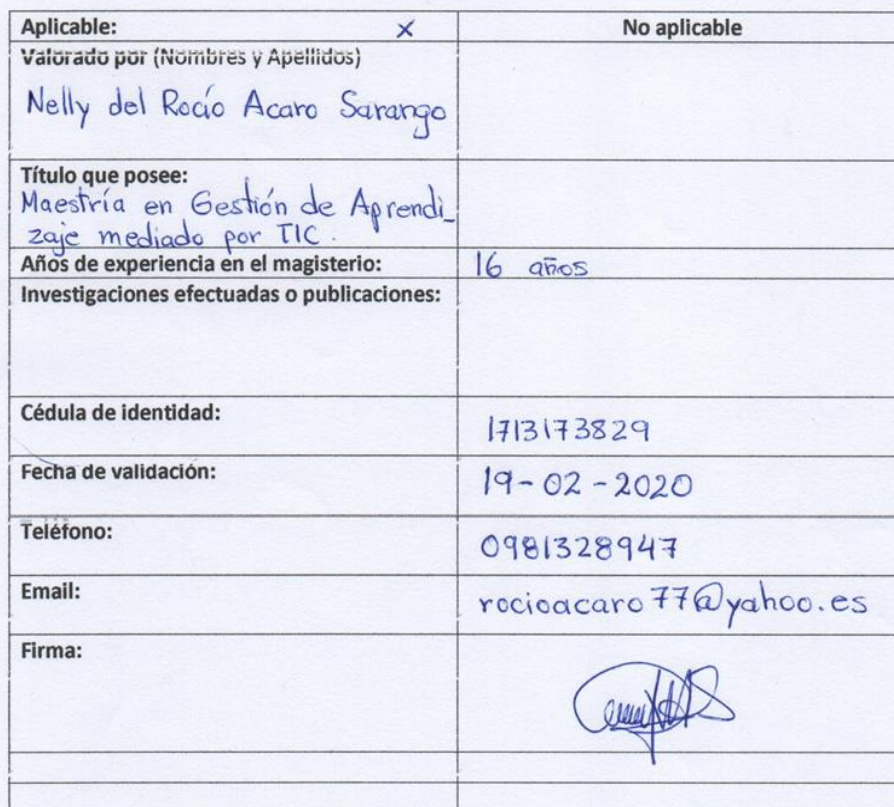 Aplicable: x No aplicable
Valorado por (Nombres y Apellidos)
Nelly del Rocío Acaro Sarango
Título que posee:
Maestría en Gestión de Aprendi_
zaje mediado por TIC.
Años de experiencia en el magisterio: 16 años
Investigaciones efectuadas o publicaciones:
Cédula de identidad: 1713173829
Fecha de validación: 19-02-2020
Teléfono: 0981328947
Email: rocioacaro77@yahoo.es
Firma: